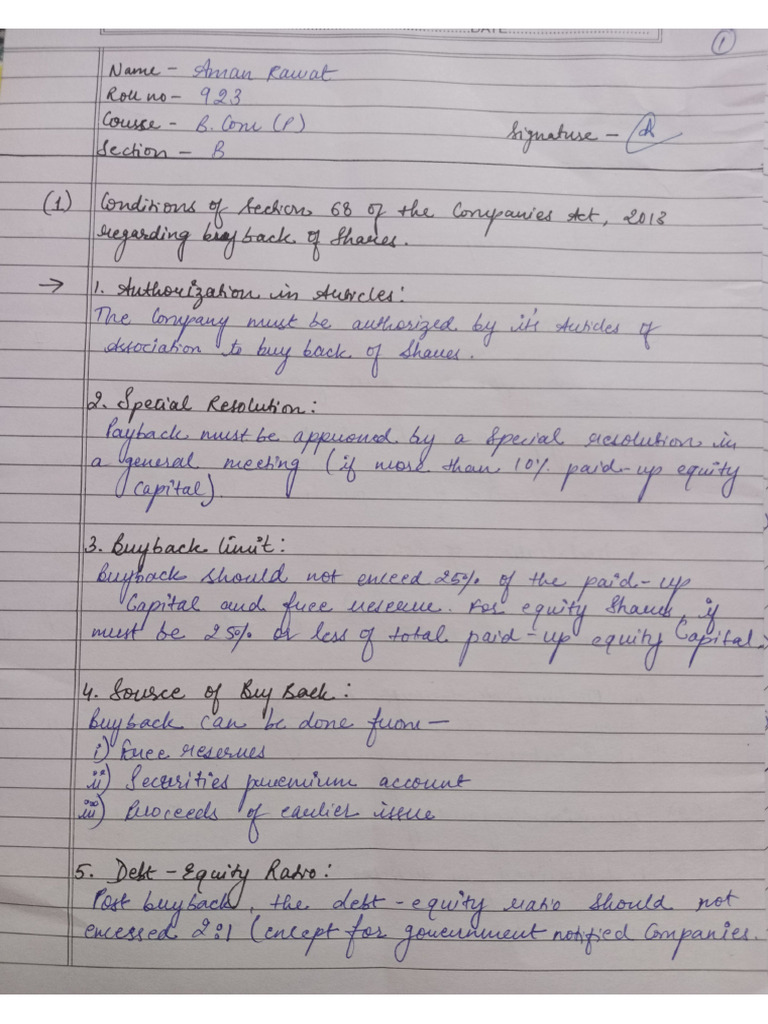 DATE
1
Name - Aman Rawat
Roll no - 923
Course - B.Com (P)
Signature -
Section - B
(1) Conditions of Section 68 of the Companies Act, 2013
regarding buy back of Shares.
→ 1. Authorization in Articles:
The Company must be authorized by it's Articles of
Association to buy back of Shares.
2. Special Resolution:
Payback must be approved by a special resolution in
a general meeting (if more than 10% paid-up equity
Capital).
3. Buyback limit:
Buyback should not exceed 25% of the paid-up
Capital and free reserve. For equity Shares, if
must be 25% or less of total paid-up equity Capital.
4. Source of Buy Back:
Buyback can be done from —
i) Free reserves
ii) Securities premium account
iii) Proceeds of earlier issue
5. Debt - Equity Ratio:
Post buyback, the debt - equity ratio should not
excessed 2:1 (except for government notified Companies.